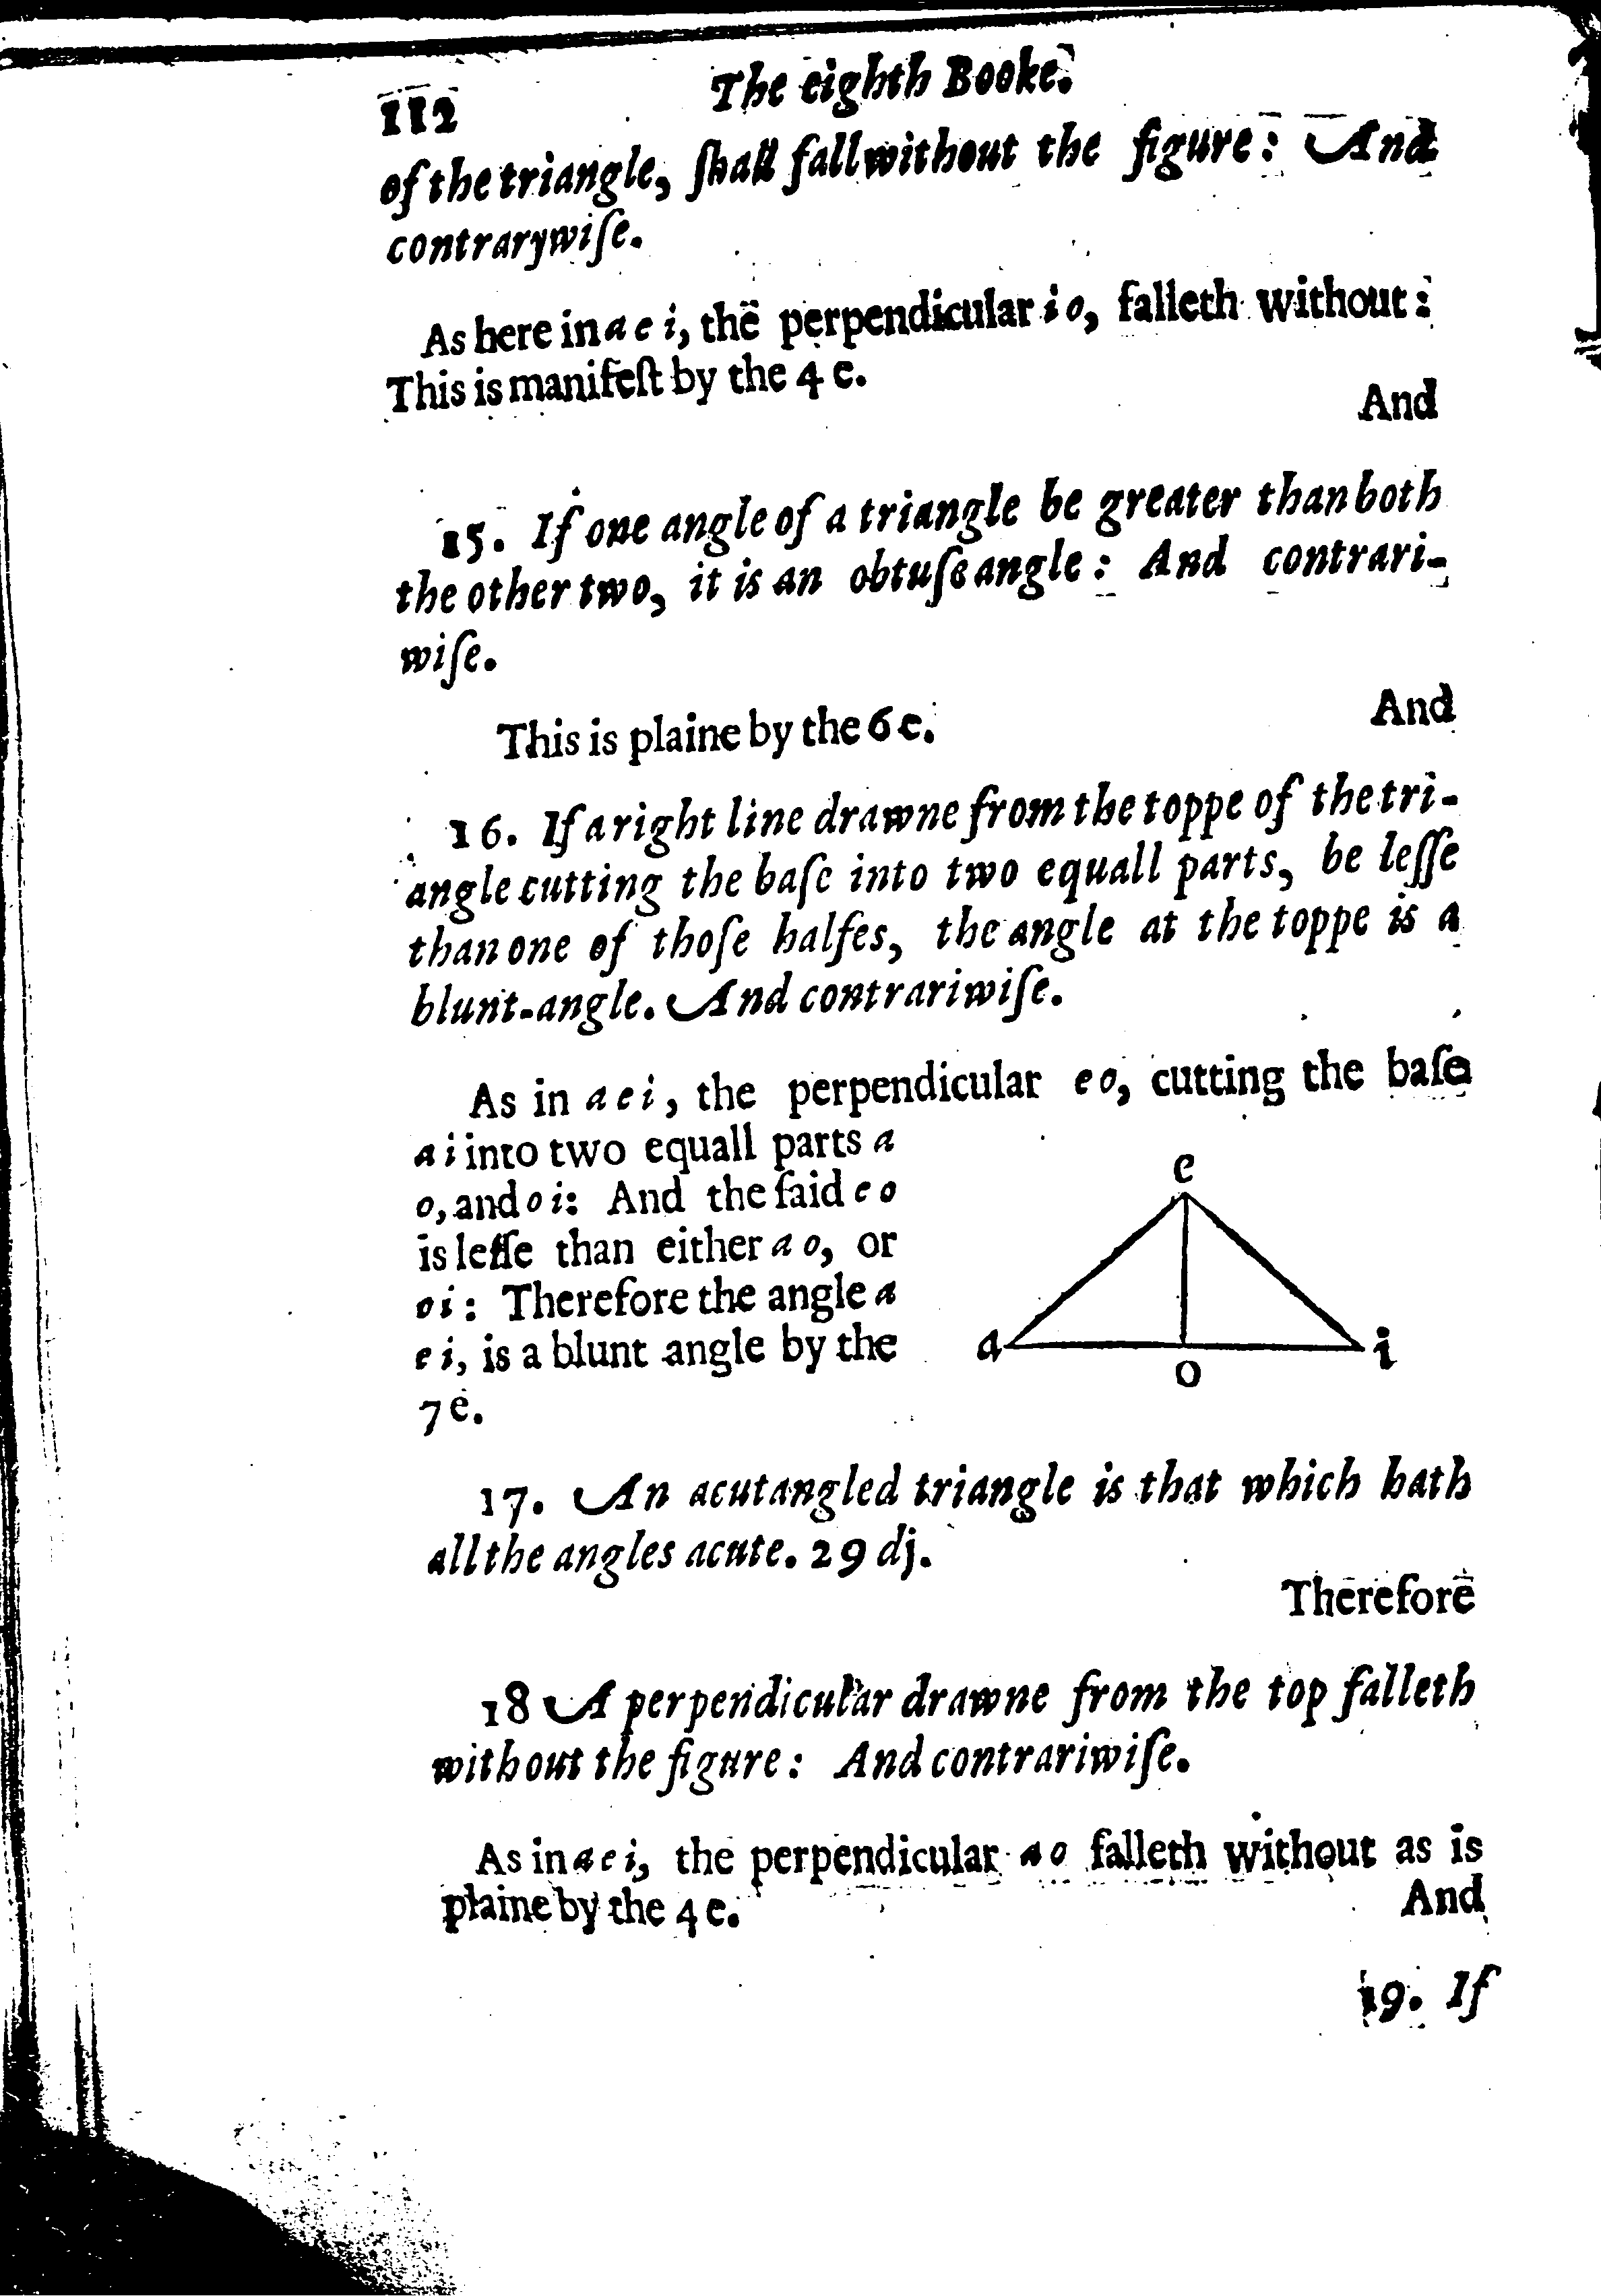 112 The eighth Booke.
of the triangle, ſhall fall without the figure: And
contrarywiſe.
As here in a e i, the perpendicular i o, falleth without:
This is manifeſt by the 4 e.
And
15. If one angle of a triangle be greater than both
the other two, it is an obtuſe angle: And contrari-
wiſe.
This is plaine by the 6 e. And
16. If a right line drawne from the toppe of the tri-
angle cutting the baſe into two equall parts, be leſſe
than one of thoſe halfes, the angle at the toppe is a
blunt-angle. And contrariwiſe.
As in a e i, the perpendicular e o, cutting the baſe
a i into two equall parts a
o, and o i: And the ſaid e o
is leſſe than either a o, or
o i: Therefore the angle a
e i, is a blunt angle by the
7 e.
e
a
i
o
17. An acutangled triangle is that which hath
all the angles acute. 29 dj.
Therefore
18 A perpendicular drawne from the top falleth
without the figure: And contrariwiſe.
As in a e i, the perpendicular a o falleth without as is
plaine by the 4 e. And
19. If